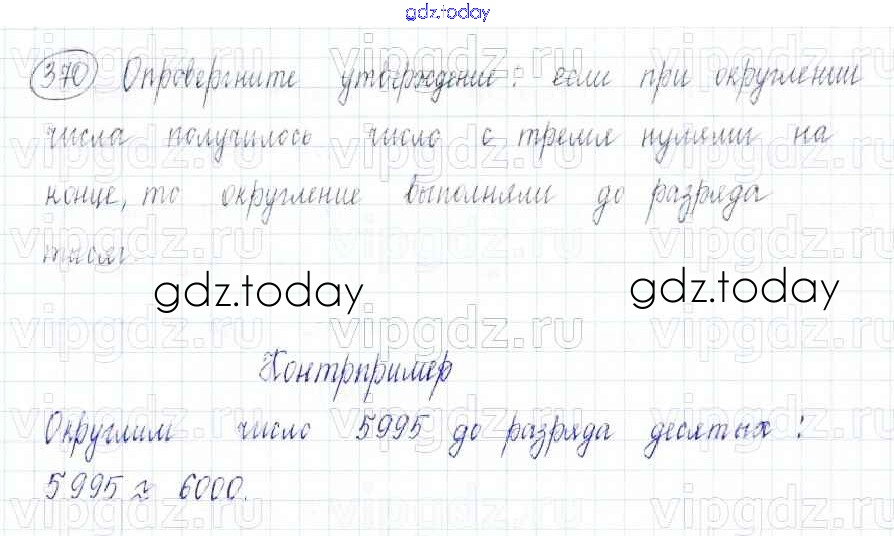 gdz.today
370 Опровергните утверждение: если при округлении
числа получилось число с тремя нулями на
конце, то округление выполняли до разряда
тысяч.
gdz.today gdz.today
Контрпример
Округлим число 5995 до разряда десятых:
5995 ≈ 6000.
vipgdz.ru